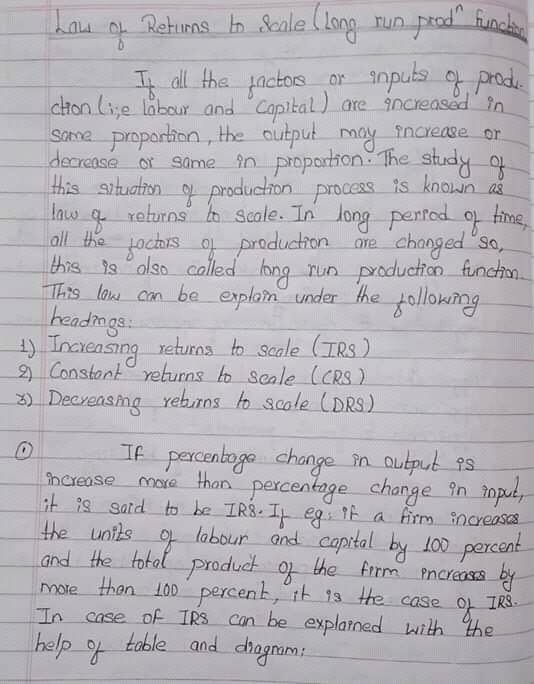 Law of Returns to Scale (Long run prodⁿ function
If all the factors or inputs of produ-
ction (i;e labour and capital) are increased in
same proportion, the output may increase or
decrease or same in proportion. The study of
this situation of production process is known as
law of returns to scale. In long period of time,
all the factors of production are changed so,
this is also called long run production function.
This law can be explain under the following
headings:
1) Increasing returns to scale (IRS)
2) Constant returns to scale (CRS)
3) Decreasing returns to scale (DRS)
① If percentage change in output is
increase more than percentage change in input,
it is said to be IRS. If eg: if a firm increases
the units of labour and capital by 100 percent
and the total product of the firm increases by
more than 100 percent, it is the case of IRS.
In case of IRS can be explained with the
help of table and diagram: